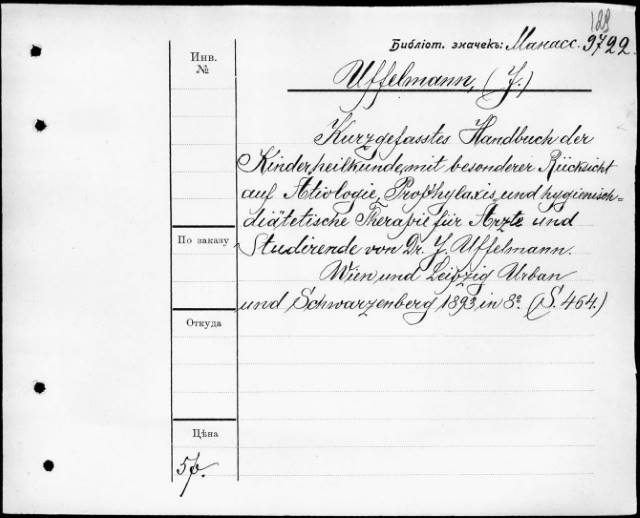 128
Библіот. значекъ: Манасс. 9722
Инв.
№
Uffelmann, (J.)
Kurzgefasstes Handbuch der
Kinderheilkunde mit besonderer Rücksicht
auf Ätiologie, Prophylaxis und hygienisch-
diätetische Therapie für Ärzte und
По заказу
Studirende von Dr. J. Uffelmann.
Wien und Leipzig Urban
und Schwarzenberg 1893 in 8º (S. 464.)
Откуда
Цѣна
5р.